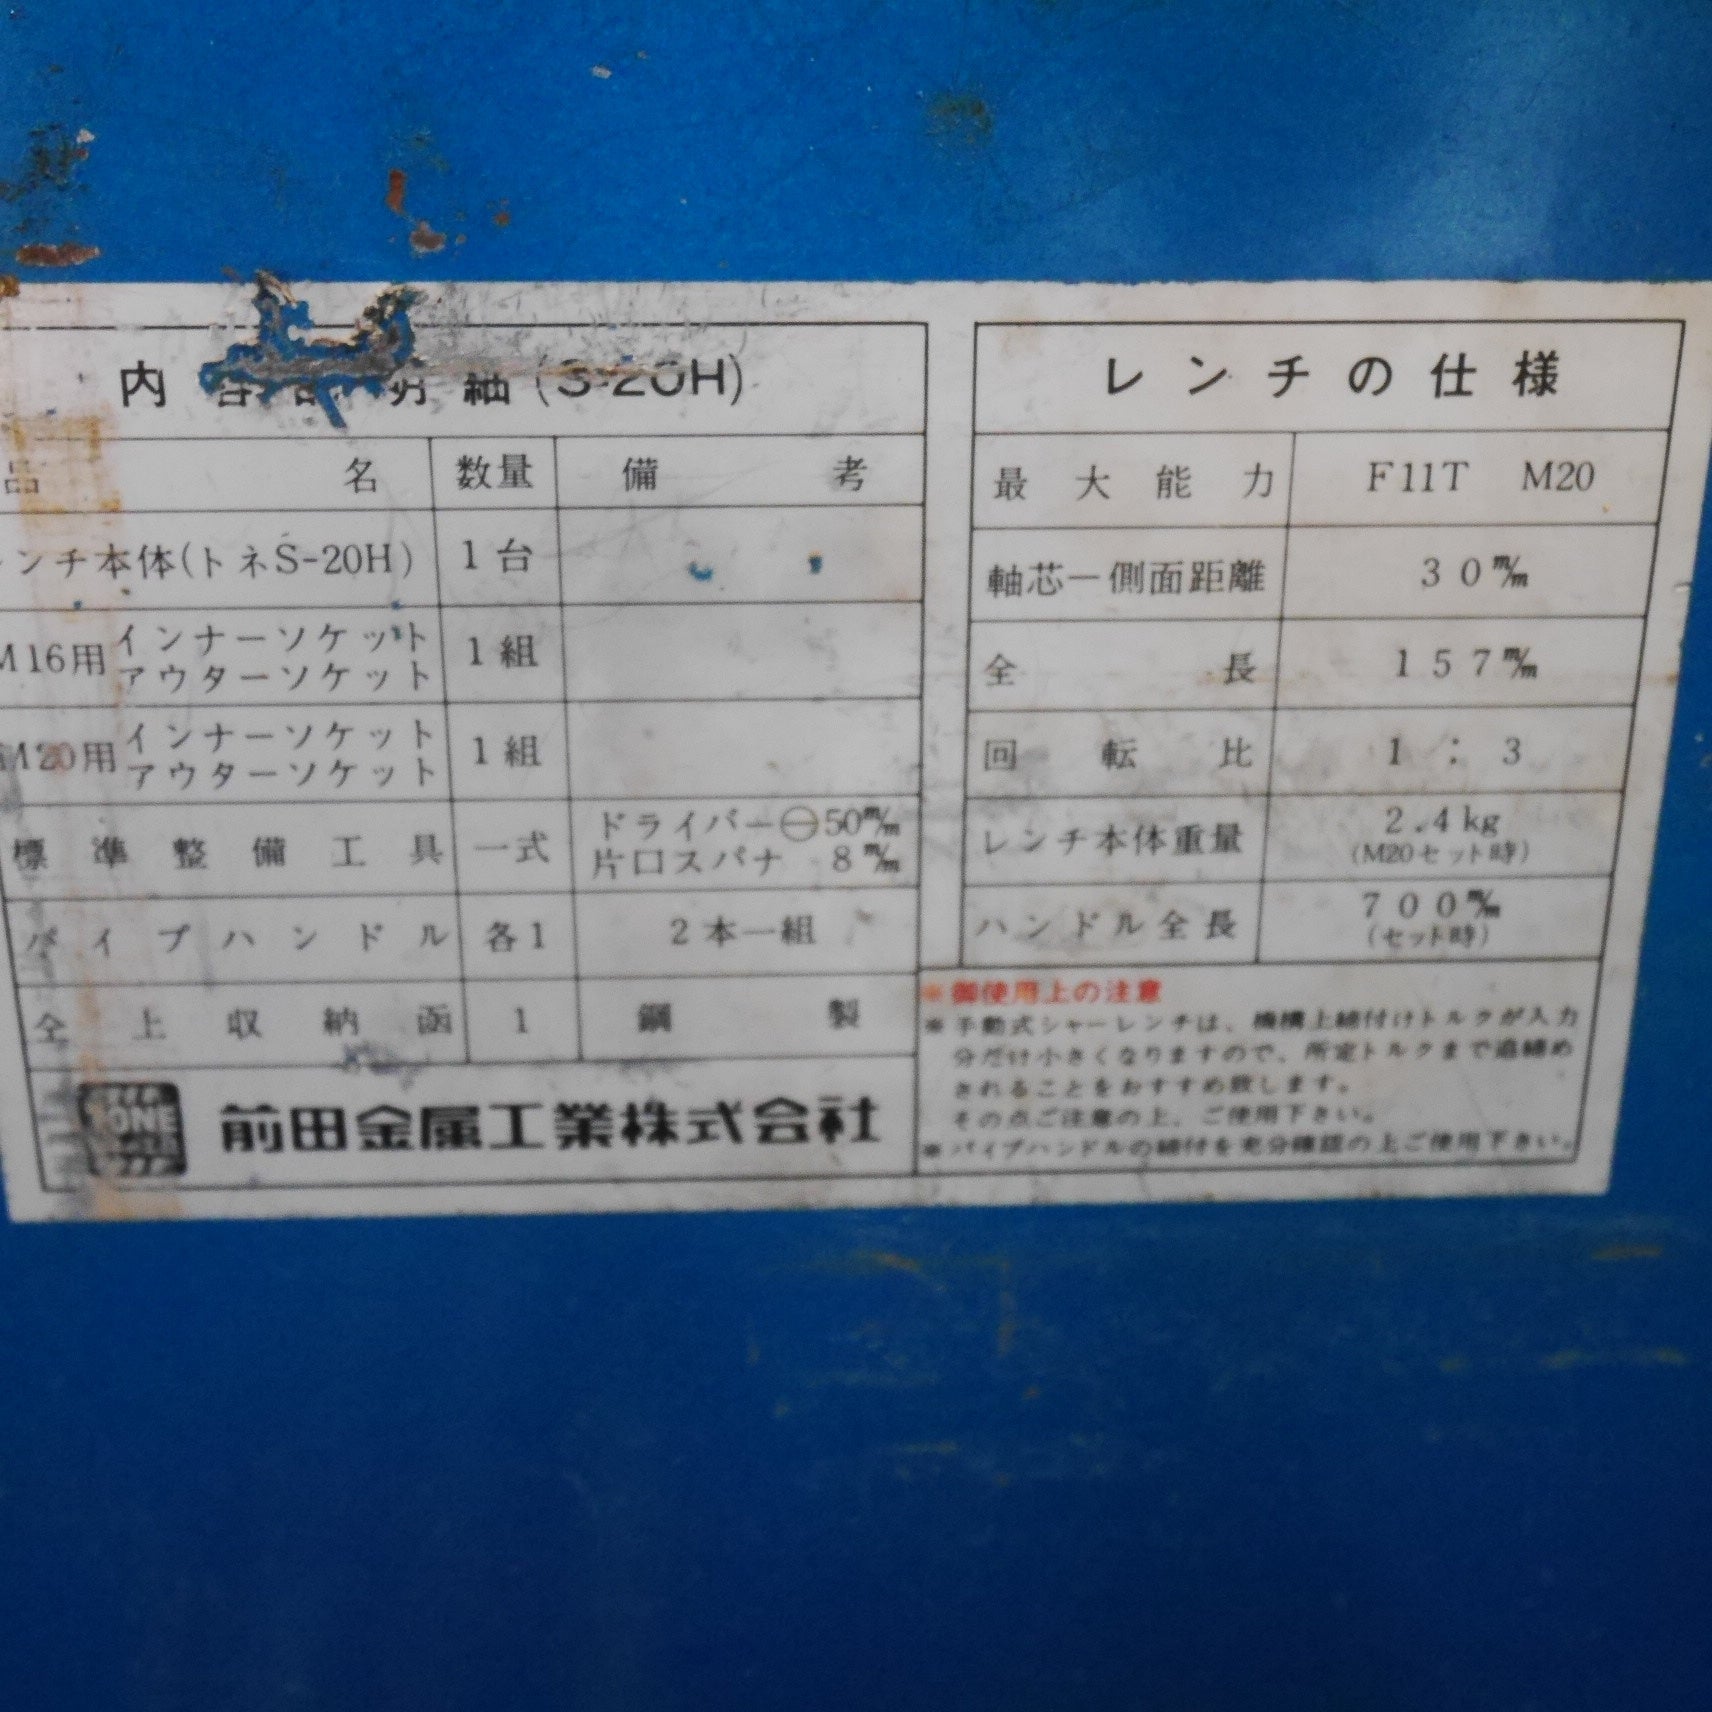 内 明細 (S-20H)
品名 数量 備考
ンチ本体(トネS-20H) 1台
M16用 インナーソケット アウターソケット 1組
M20用 インナーソケット アウターソケット 1組
標準整備工具 一式 ドライバー⊖50m/m
片口スパナ 8m/m
パイプハンドル 各1 2本一組
全上収納函 1 鋼製
TONE
前田金属工業株式会社
レンチの仕様
最大能力 F11T M20
軸芯ー側面距離 30m/m
全長 157m/m
回転比 1:3
レンチ本体重量 2.4kg
(M20セット時)
ハンドル全長 700m/m
(セット時)
※御使用上の注意
※手動式シャーレンチは、機構上締付けトルクが入力
分だけ小さくなりますので、所定トルクまで追締め
されることをおすすめ致します。
その点ご注意の上、ご使用下さい。
※パイプハンドルの締付を充分確認の上ご使用下さい。